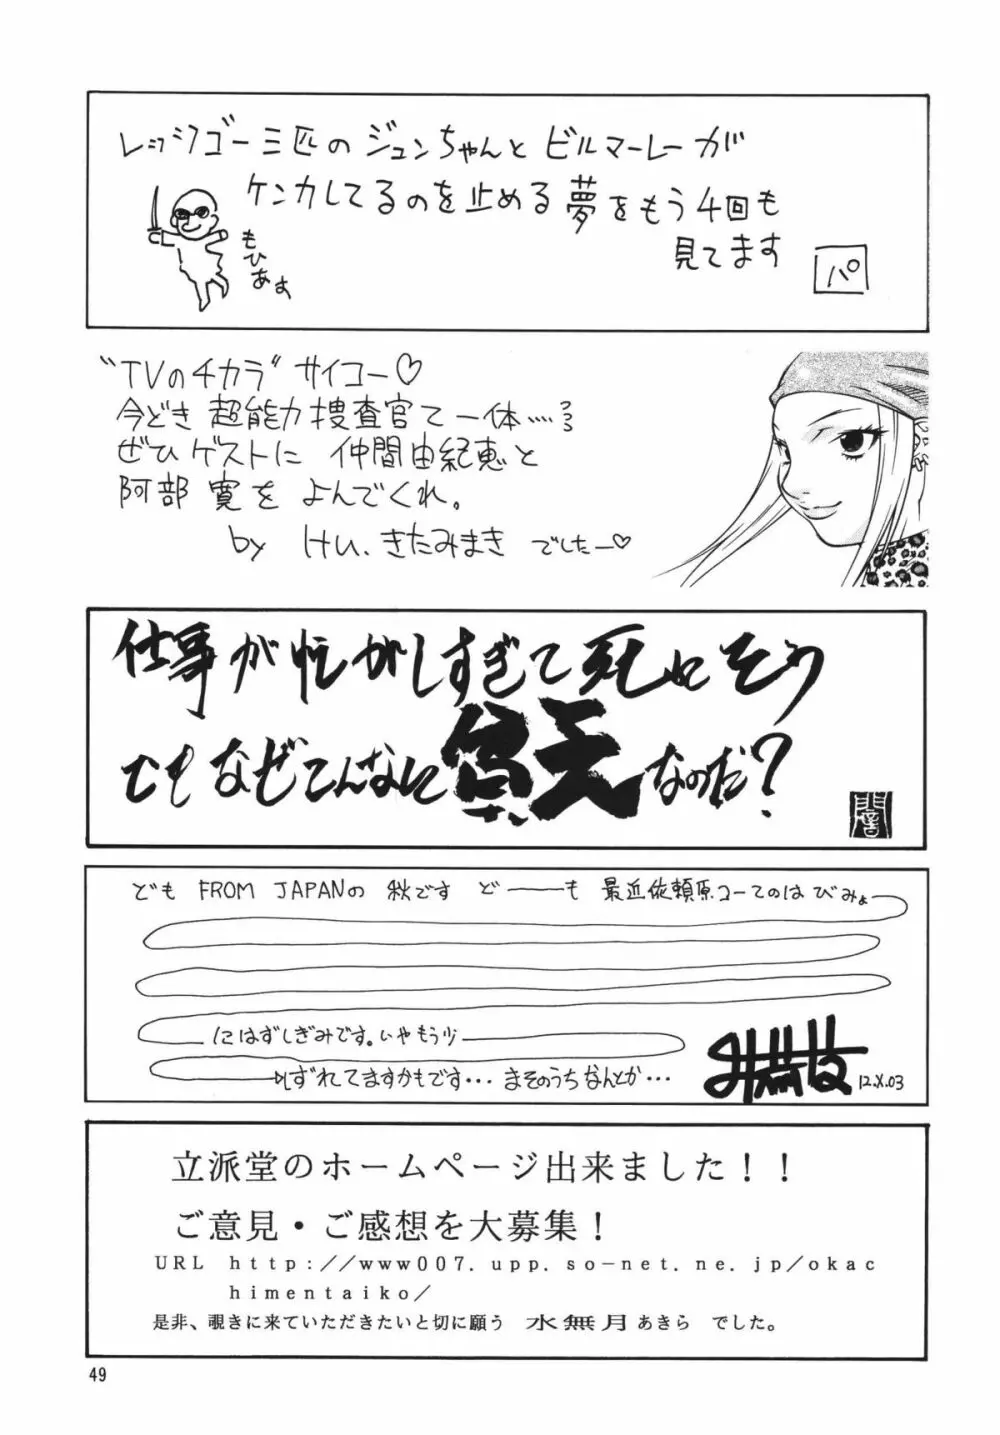 レッツゴー三匹のジュンちゃんとビルマーレーが
ケンカしてるのを止める夢をもう4回も
見てます
パ
もひあす
“TVのチカラ”サイコー♡
今どき超能力捜査官て一体……
ぜひゲストに 仲間由紀恵と
阿部 寛を よんでくれ。
by けい.きたみまき でしたー♡
仕事が忙がしすぎて死にそう
でもなぜこんなに貧乏なのだ?
ども FROM JAPANの 秋です ど――も 最近依頼原コーてのは びみょ―
にはずしぎみです。いやもう少
しずれてますかもです… まそのうちなんとか…
12.X.03
立派堂のホームページ出来ました!!
ご意見・ご感想を大募集!
URL http://www007.upp.so-net.ne.jp/okac
himentaiko/
是非、覗きに来ていただきたいと切に願う 水無月あきら でした。
49